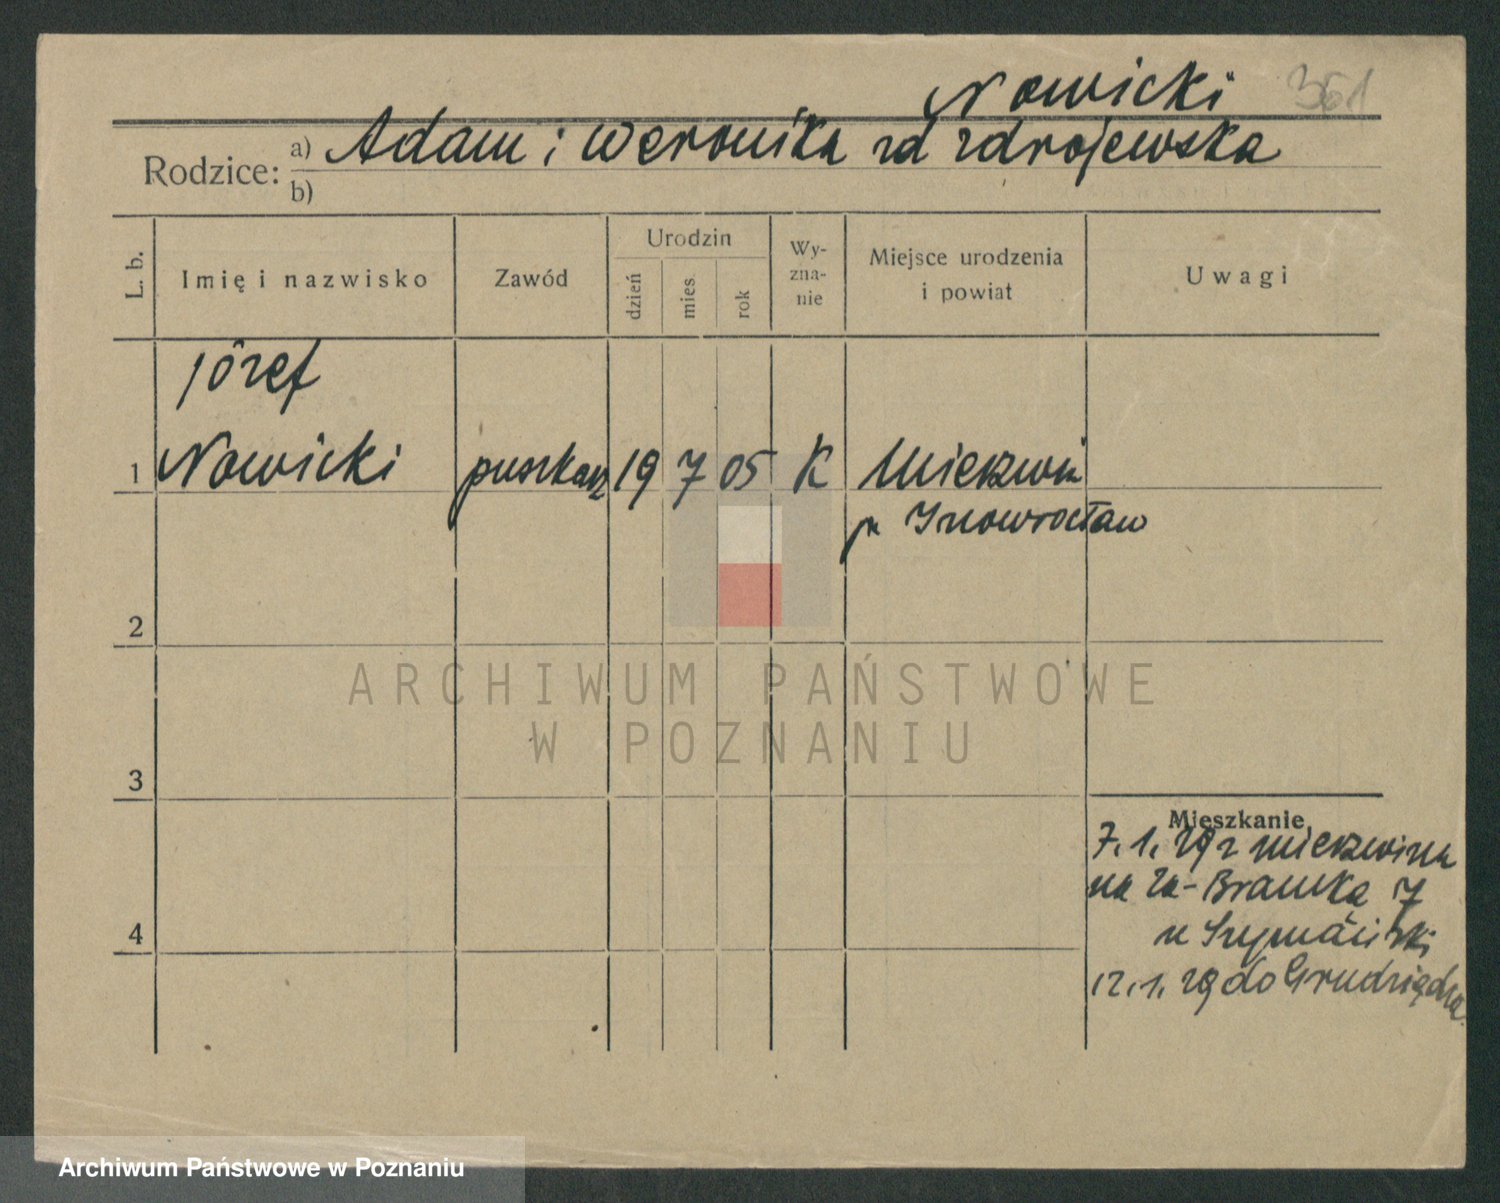 Nowicki 361
Rodzice: a) Adam i Weronika zd Zdrojewska
b)
L. b.
Imię i nazwisko
Zawód
Urodzin
dzień
mies.
rok
Wy-
zna-
nie
Miejsce urodzenia
i powiat
Uwagi
Józef
1 Nowicki puszkarz 19 7 05 K Mierzwin
p Inowrocław
2
3
4
Mieszkanie
7.1.29 z Mierzwina
na Za-Bramka 7
u Szymański
12.1.29 do Grudziądza
ARCHIWUM PAŃSTWOWE
W POZNANIU
Archiwum Państwowe w Poznaniu